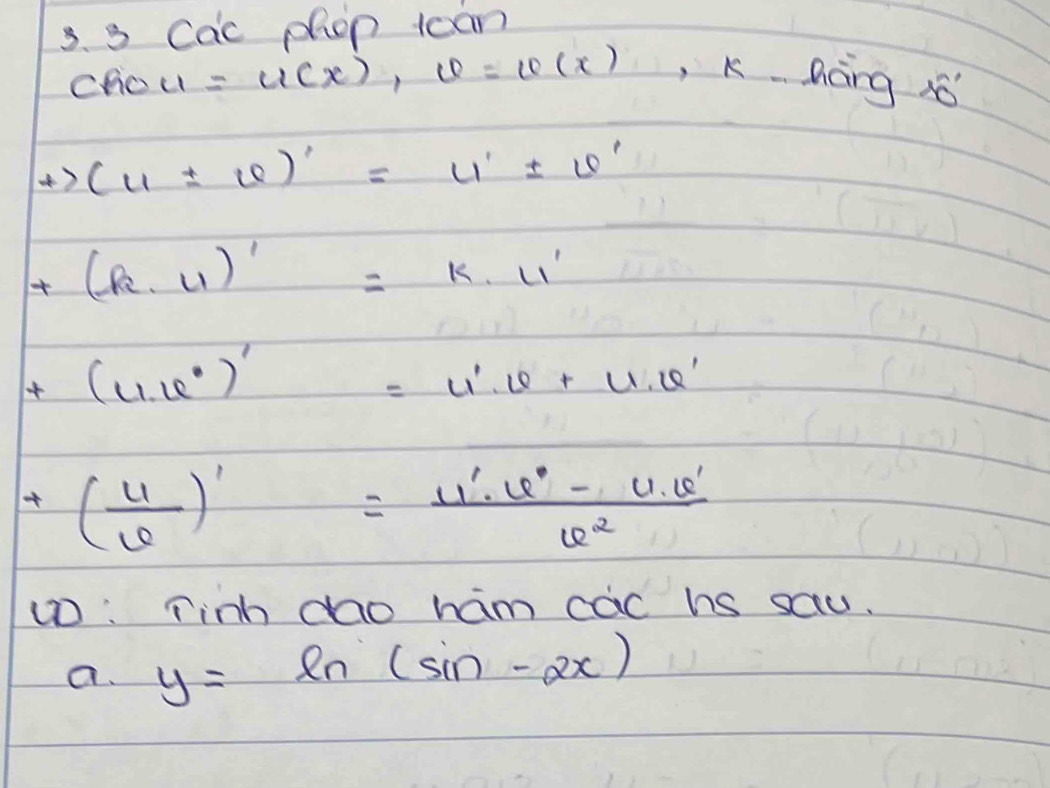 3.3 Các phép toán
Cho u = u(x), v = v(x), k - hằng số
+> (u ± v)' = u' ± v'
+ (k. u)' = k. u'
+ (u.v)' = u'.v + u.v'
+ (u/v)' = (u'.v - u.v')/v²
VD: Tính đạo hàm các hs sau.
a. y = ln (sin - 2x)